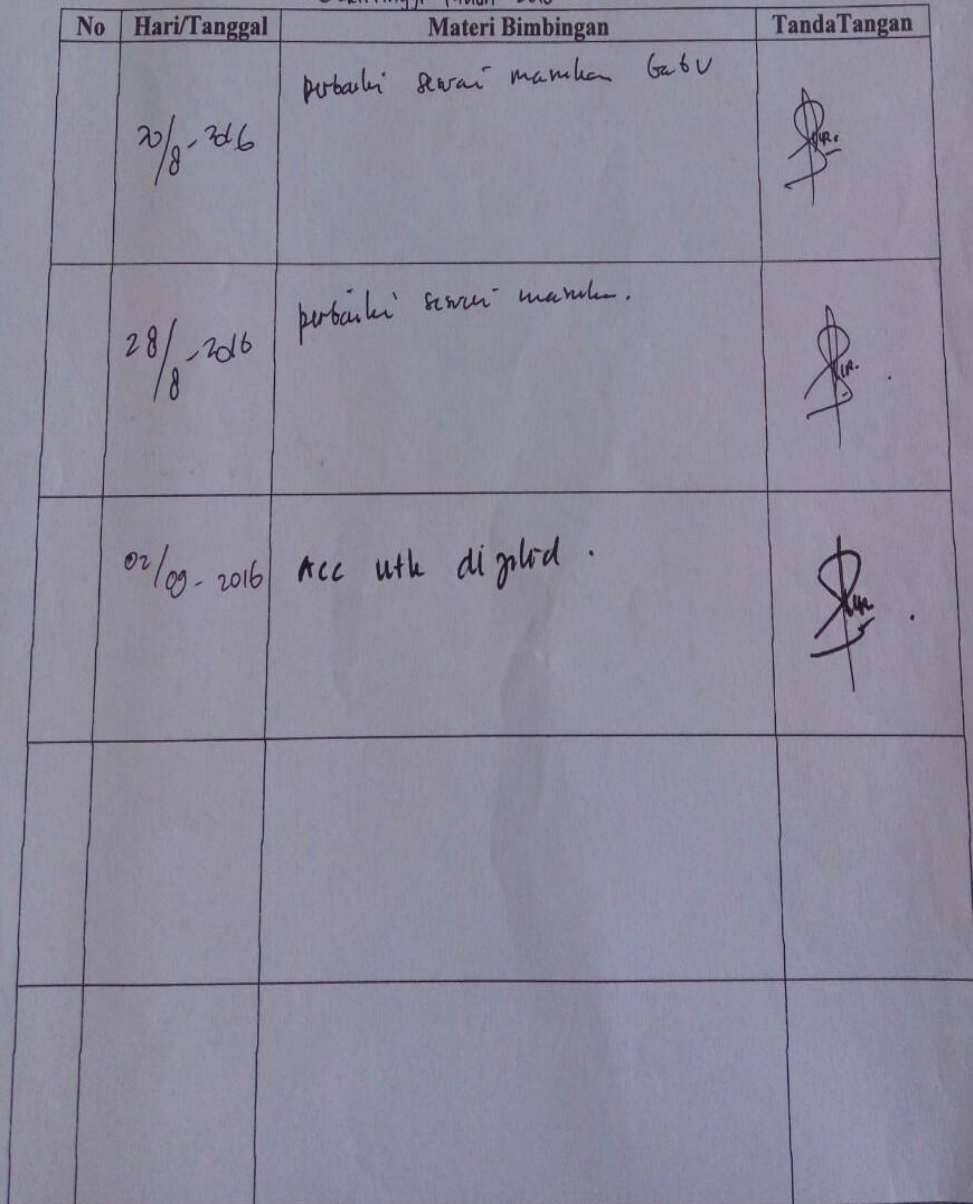 No Hari/Tanggal Materi Bimbingan TandaTangan
20/8-2016 perbaiki sesuai masukan Bab V
28/8-2016 perbaiki sesuai masukan.
02/09-2016 Acc utk di